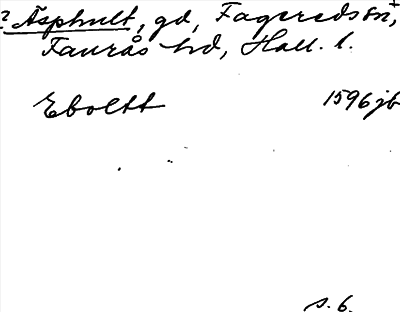 ? Äsphult, gd, Fagereds sn,
Faurås hd, Hall. l.
Eboltt 1596 jb
s. 6.